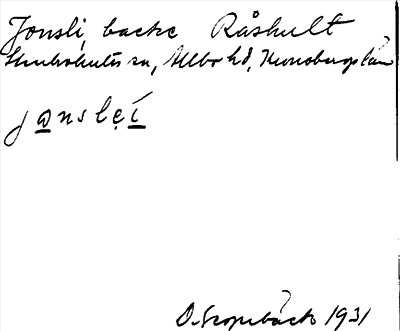 Jonsli, backe Råshult
Stenbrohults sn, Allbo hd, Kronobergs län
janslẹí
1931